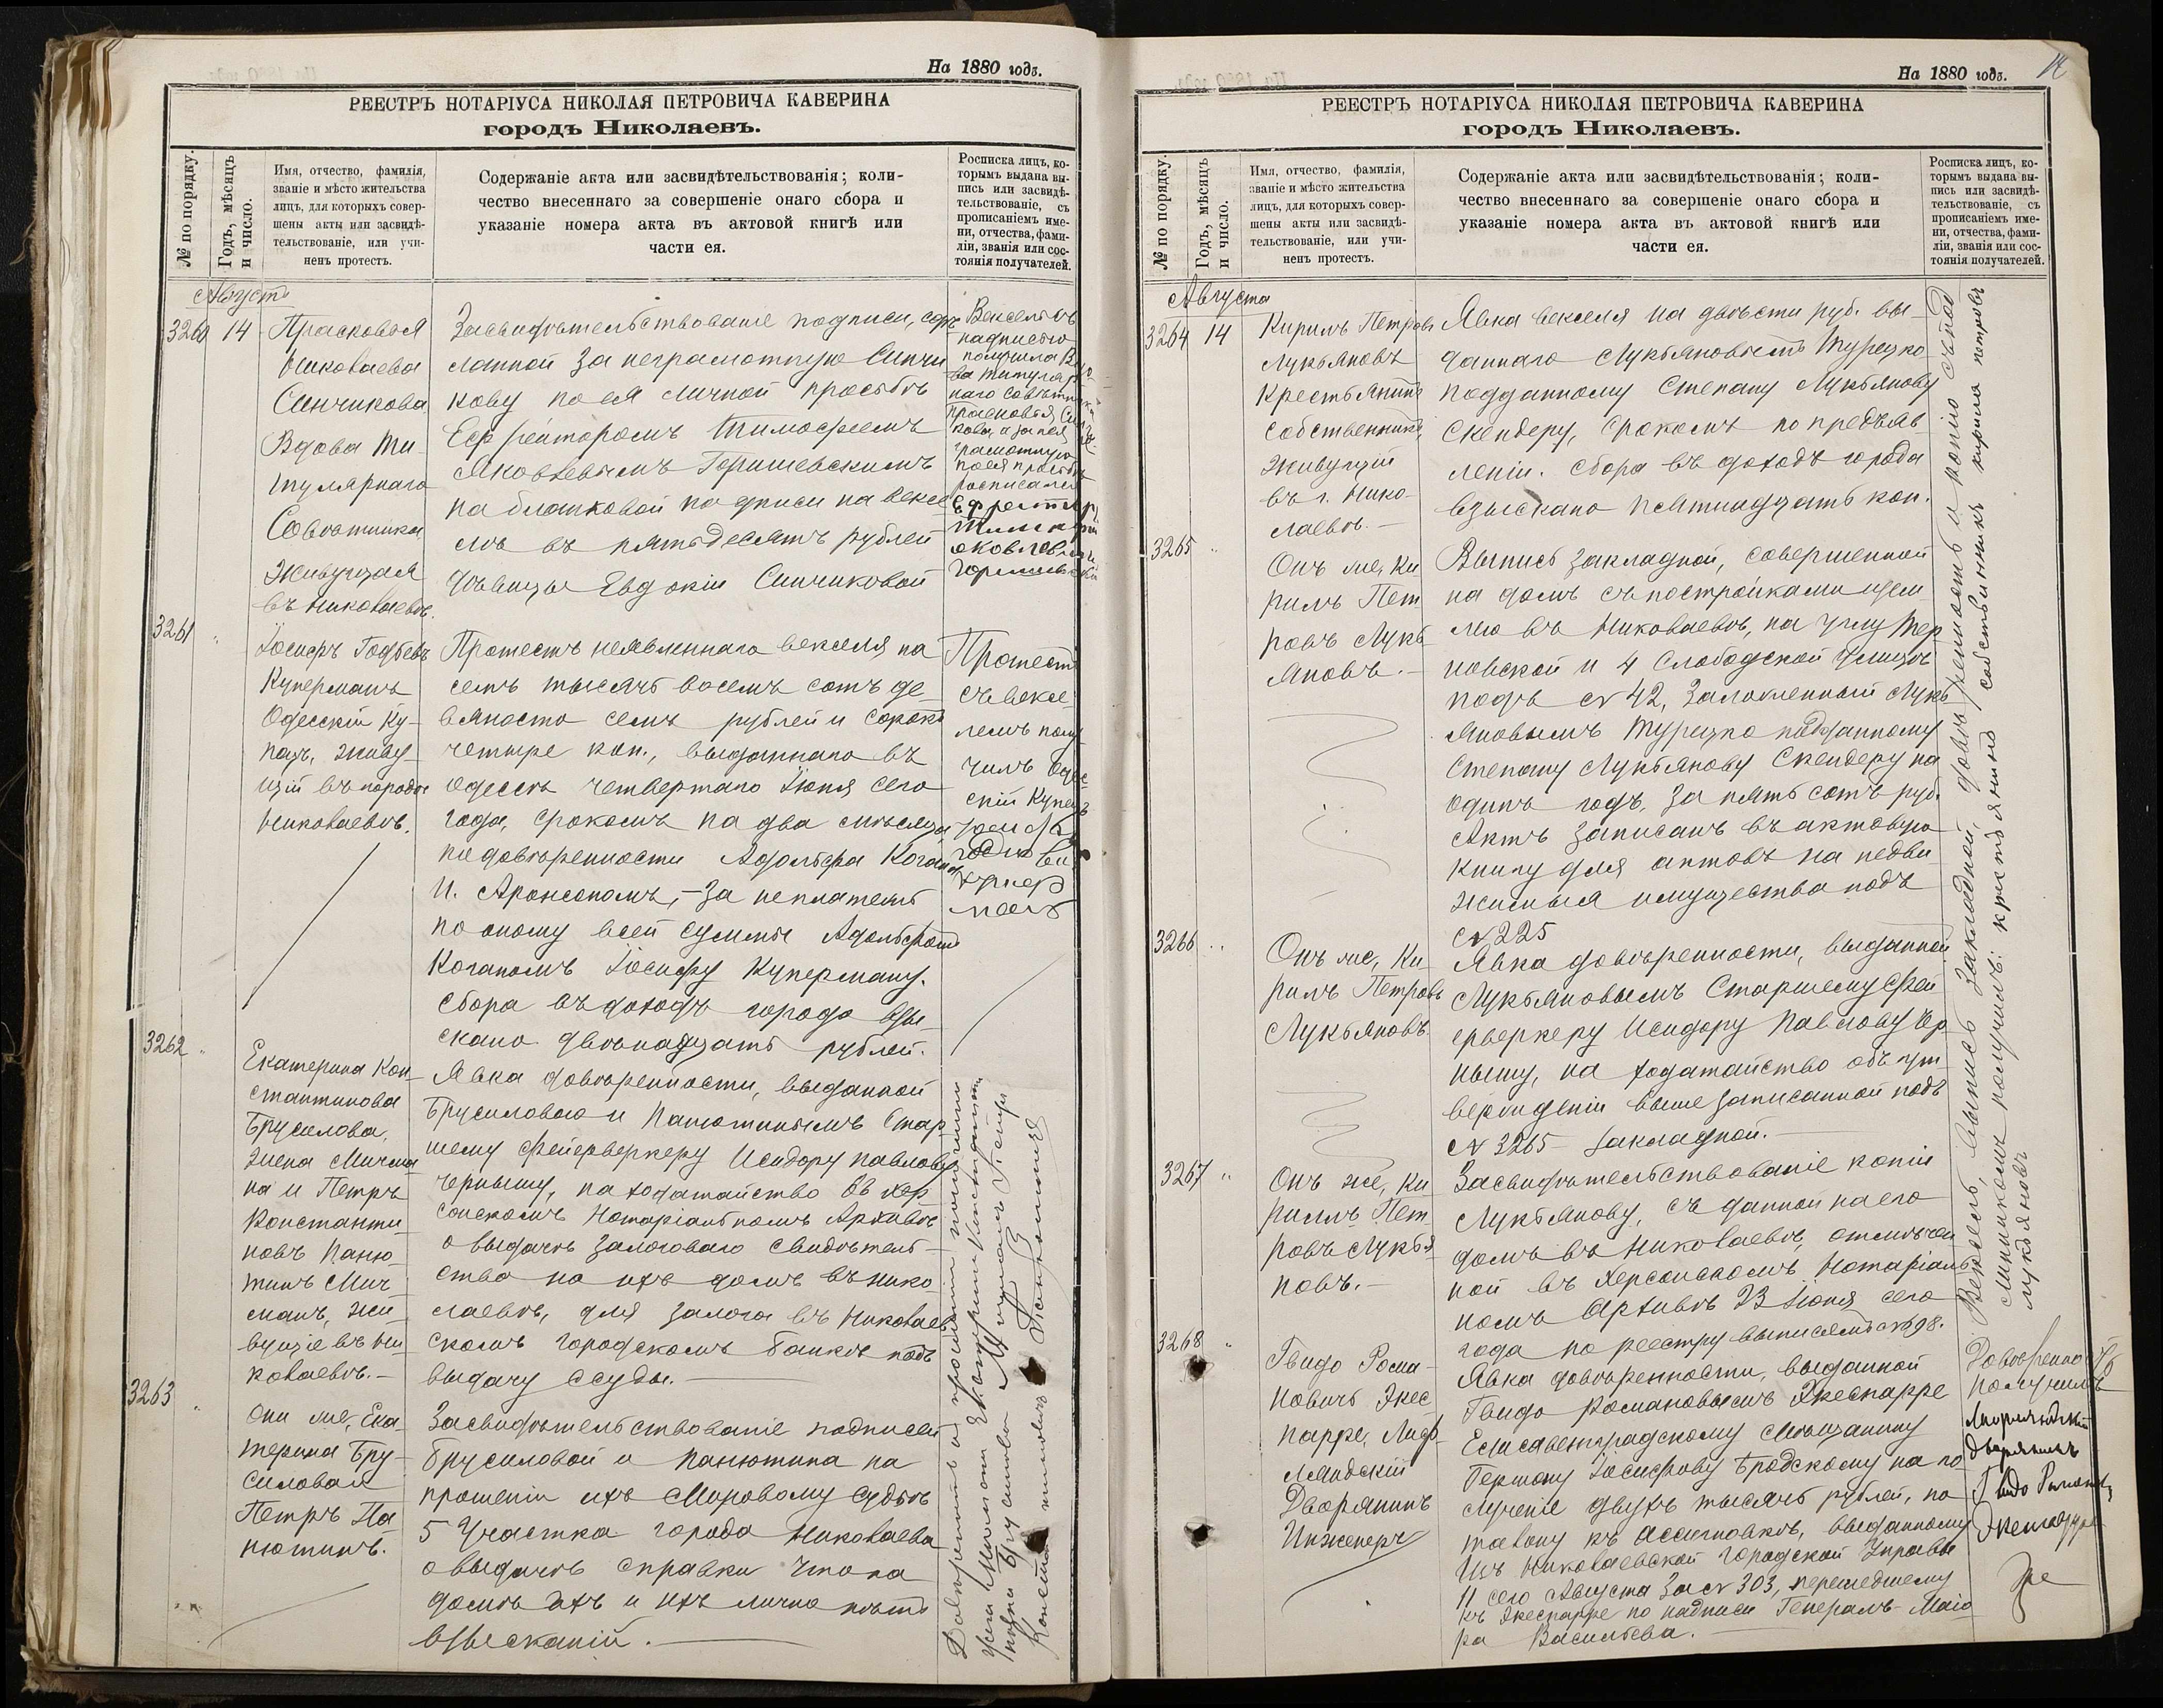 На 1880 годъ.
РЕЕСТРЪ НОТАРІУСА НИКОЛАЯ ПЕТРОВИЧА КАВЕРИНА
городъ Николаевъ.
№ по порядку.
Годъ, мѣсяцъ
и число.
Имя, отчество, фамилія,
званіе и мѣсто жительства
лицъ, для которыхъ совер-
шены акты или засвидѣ-
тельствованіе, или учи-
ненъ протестъ.
Содержаніе акта или засвидѣтельствованія; коли-
чество внесеннаго за совершеніе онаго сбора и
указаніе номера акта въ актовой книгѣ или
части ея.
Росписка лицъ, ко-
торымъ выдана вы-
пись или засвидѣ-
тельствованіе, съ
прописаніемъ име-
ни, отчества, фами-
ліи, званія или сос-
тоянія получателей.
Августъ
3260 14
Прасковья
Николаева
Синчикова
Вдова Ти-
тулярнаго
Совѣтника
Живущая
въ Николаевѣ.
Засвидѣтельствованіе подписи, сдѣ-
ланной за неграмотную Синчи
кову по ея личной просьбѣ
Ефрейторомъ Тимофеемъ
Яковлевымъ Горишевскимъ
на бланковой подписи на вексе
лѣ въ пятьдесятъ рублей
дѣвицы Евдокіи Синчиковой
Вексель съ
надписью
получила
наго Совѣтника
Прасковья
грамотную
по ея просьбѣ
росписался
Ефрейторъ
3261 "
Іосифъ Годьевъ
Куперманъ
Одесскій Ку-
пецъ, живу-
щій въ городѣ
Николаевѣ.
Протестъ неявленнаго векселя на
семь тысячъ восемь сотъ де-
вяносто семь рублей и сорокъ
четыре коп., выданнаго въ
Одессѣ четвертаго Іюня сего
года, срокомъ на два мѣсяца,
по довѣренности Адольфа Когана
И. Аронсономъ, — за неплатежъ
по оному всей суммы Адольфомъ
Коганомъ Іосифу Куперману.
Сбора въ доходъ города взы-
скано двѣнадцать рублей.
Протестъ
съ вексе
лемъ полу
чилъ Одес
скій Купецъ
3262 "
Екатерина Кон-
стантинова
Брусилова,
жена Мичма
на и Петръ
Константи
новъ Паню-
тинъ Мич-
манъ, жи-
вущіе въ Ни
колаевѣ. —
Явка довѣренности, выданной
Брусиловою и Панютинымъ Стар-
шему Фейерверкеру Исидору Павлову
Чернышу, на ходатайство въ Хер
сонскомъ Нотаріальномъ Архивѣ
о выдачѣ залоговаго свидѣтель-
ства на ихъ домъ въ Нико-
лаевѣ, для залога въ Николаев
скомъ Городскомъ Банкѣ подъ
выдачу ссуды. —
3263 "
Они же, Ека-
терина Бру-
силова и
Петръ Па
нютинъ.
Засвидѣтельствованіе подписей
Брусиловой и Панютина на
прошеніи ихъ Мировому Судьѣ
5 Участка города Николаева
о выдачѣ справки что на
домѣ ихъ и ихъ лично нѣтъ
взысканій. —
На 1880 годъ.
РЕЕСТРЪ НОТАРІУСА НИКОЛАЯ ПЕТРОВИЧА КАВЕРИНА
городъ Николаевъ.
№ по порядку.
Годъ, мѣсяцъ
и число.
Имя, отчество, фамилія,
званіе и мѣсто жительства
лицъ, для которыхъ совер-
шены акты или засвидѣ-
тельствованіе, или учи-
ненъ протестъ.
Содержаніе акта или засвидѣтельствованія; коли-
чество внесеннаго за совершеніе онаго сбора и
указаніе номера акта въ актовой книгѣ или
части ея.
Росписка лицъ, ко-
торымъ выдана вы-
пись или засвидѣ-
тельствованіе, съ
прописаніемъ име-
ни, отчества, фами-
ліи, званія или сос-
тоянія получателей.
Августа
3264 14
Кирилъ Петровъ
Лукьяновъ
Крестьянинъ
Собственникъ,
Живущій
въ г. Нико-
лаевѣ. —
Явка векселя на двѣсти руб. вы-
даннаго Лукьяновымъ Турецко
подданному Степану Лукьянову
Скендеру, срокомъ по предъяв
леніи. Сбора въ доходъ города
взыскано пятнадцать коп.
3265 "
Онъ же, Ки
рилъ Пет
ровъ Лукь
яновъ. —
Выпись закладной, совершенной
на домъ съ постройками и зем
лею въ Николаевѣ, на углу Тер
новской и 4 Слободской улицъ
подъ № 42, заложенный Лукь
яновымъ Турецко подданному
Степану Лукьянову Скендеру на
одинъ годъ, за пять сотъ руб.
Актъ записанъ въ актовую
книгу для актовъ на недви
жимыя имущества подъ
№ 225
3266 "
Онъ же, Ки-
рилъ Петровъ
Лукьяновъ.
Явка довѣренности, выданной
Лукьяновымъ Старшему Фей
ерверкеру Исидору Павлову Чер
нышу, на ходатайство объ ут
вержденіи выше записанной подъ
№ 3265 закладной. —
3267 "
Онъ же, Ки
рилъ Пет-
ровъ Лукья
новъ. —
Засвидѣтельствованіе копіи
Лукьянову, съ данной на его
домъ въ Николаевѣ, отмѣчен
ной въ Херсонскомъ Нотаріаль
номъ Архивѣ 23 Іюня сего
года по реестру выписямъ № 98.
Вексель, выпись закладной, довѣренность и копію съ данной
получилъ: крестьянинъ собственникъ Кирила Петровъ
Лукьяновъ
3268 "
Гвидо Рома-
новичъ Экес
парре, Лиф-
ляндскій
Дворянинъ
Инженеръ
Явка довѣренности, выданной
Гвидо Романовымъ Экеспарре
Елисаветградскому Мѣщанину
Герману Іосифову Бродскому на по
лученіе двухъ тысячъ рублей, по
талону къ ассигновкѣ, выданному
изъ Николаевской Городской Управы
11 сего Августа за № 303, перешедшему
къ Экеспарре по надписи Генералъ-Маіо
ра Васильева. —
Довѣренность
получилъ
Лифляндскій
дворянинъ
Гвидо Романовъ